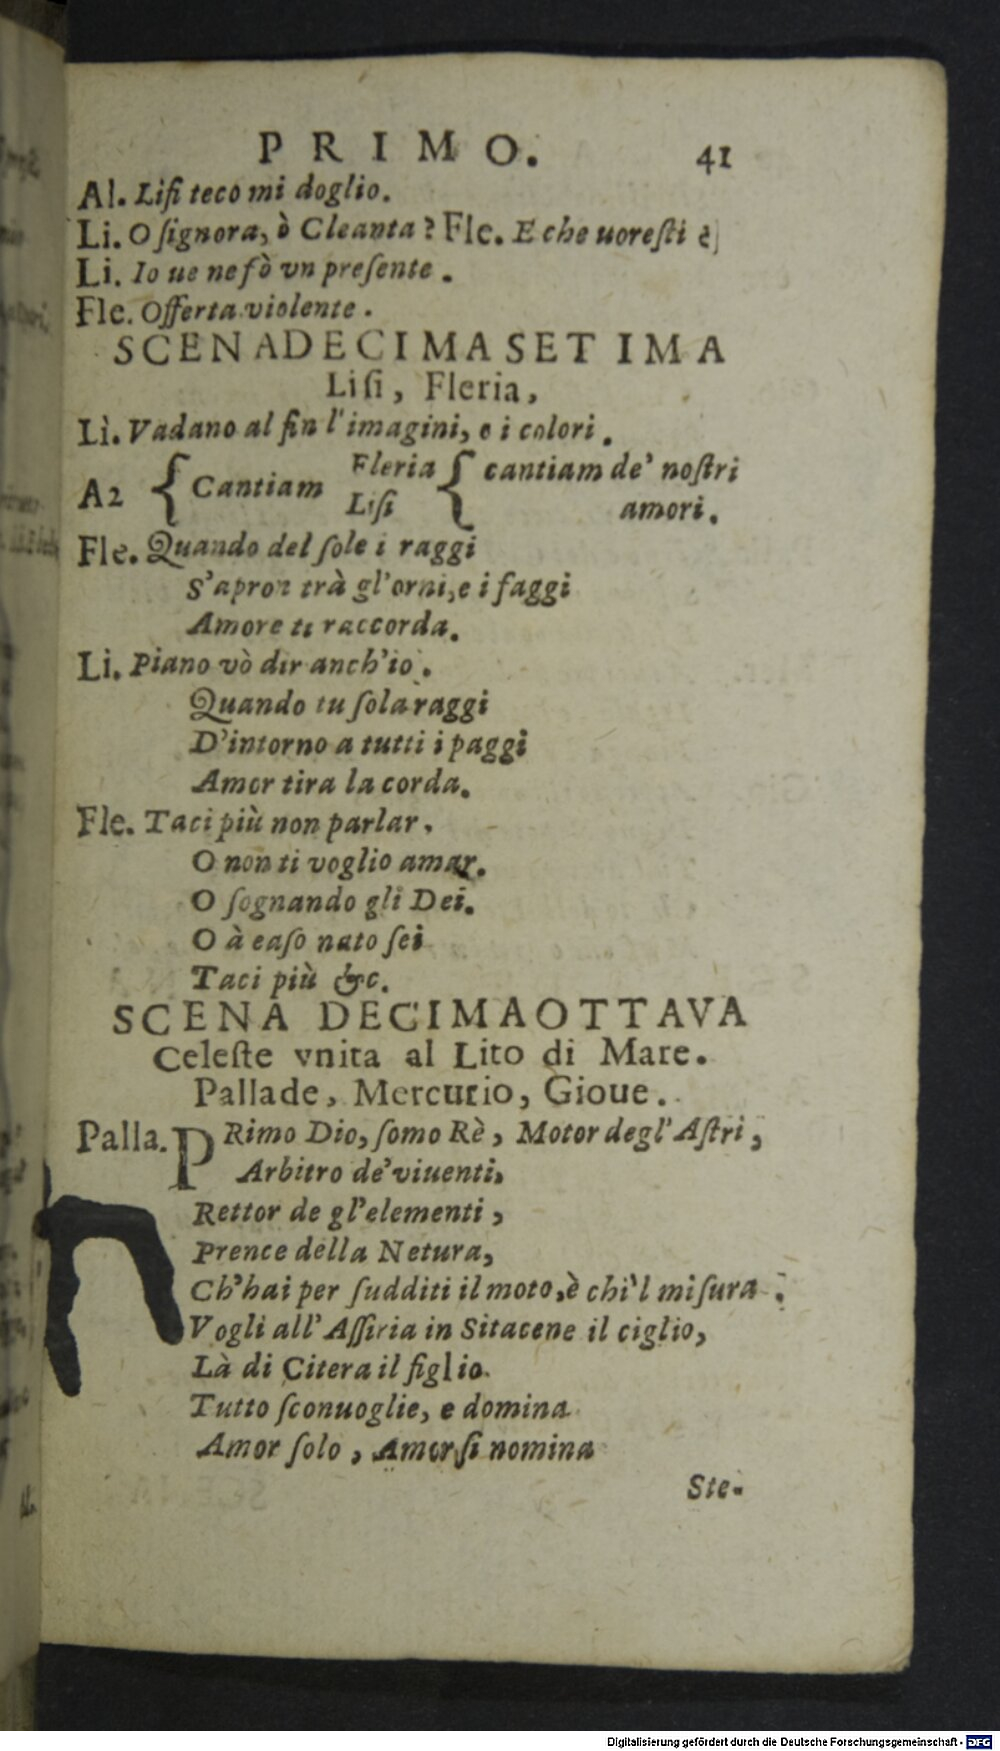 PRIMO. 41
Al. Lisi teco mi doglio.
Li. O signora, ò Cleanta? Fle. E che uoresti è
Li. Io ue ne fò vn presente.
Fle. Offerta violente.
SCENA DECIMASETIMA
Lisi, Fleria,
Lì. Vadano al fin l'imagini, e i colori.
A2 { Cantiam Fleria Lisi { cantiam de' nostri
amori.
Fle. Quando del sole i raggi
S'apron trà gl'orni, e i faggi
Amore ti raccorda.
Li. Piano vò dir anch'io.
Quando tu sola raggi
D'intorno a tutti i paggi
Amor tira la corda.
Fle. Taci più non parlar.
O non ti voglio amar.
O sognando gli Dei.
O à easo nato sei
Taci più &c.
SCENA DECIMAOTTAVA
Celeste vnita al Lito di Mare.
Pallade, Mercurio, Gioue.
Palla. PRimo Dio, somo Rè, Motor degl'Astri,
Arbitro de'viuenti,
Rettor de gl'elementi,
Prence della Netura,
Ch'hai per sudditi il moto, è chi'l misura;
Vogli all'Assiria in Sitacene il ciglio,
Là di Citera il figlio.
Tutto sconuoglie, e domina
Amor solo, Amor si nomina
Ste-
Digitalisierung gefördert durch die Deutsche Forschungsgemeinschaft - DFG